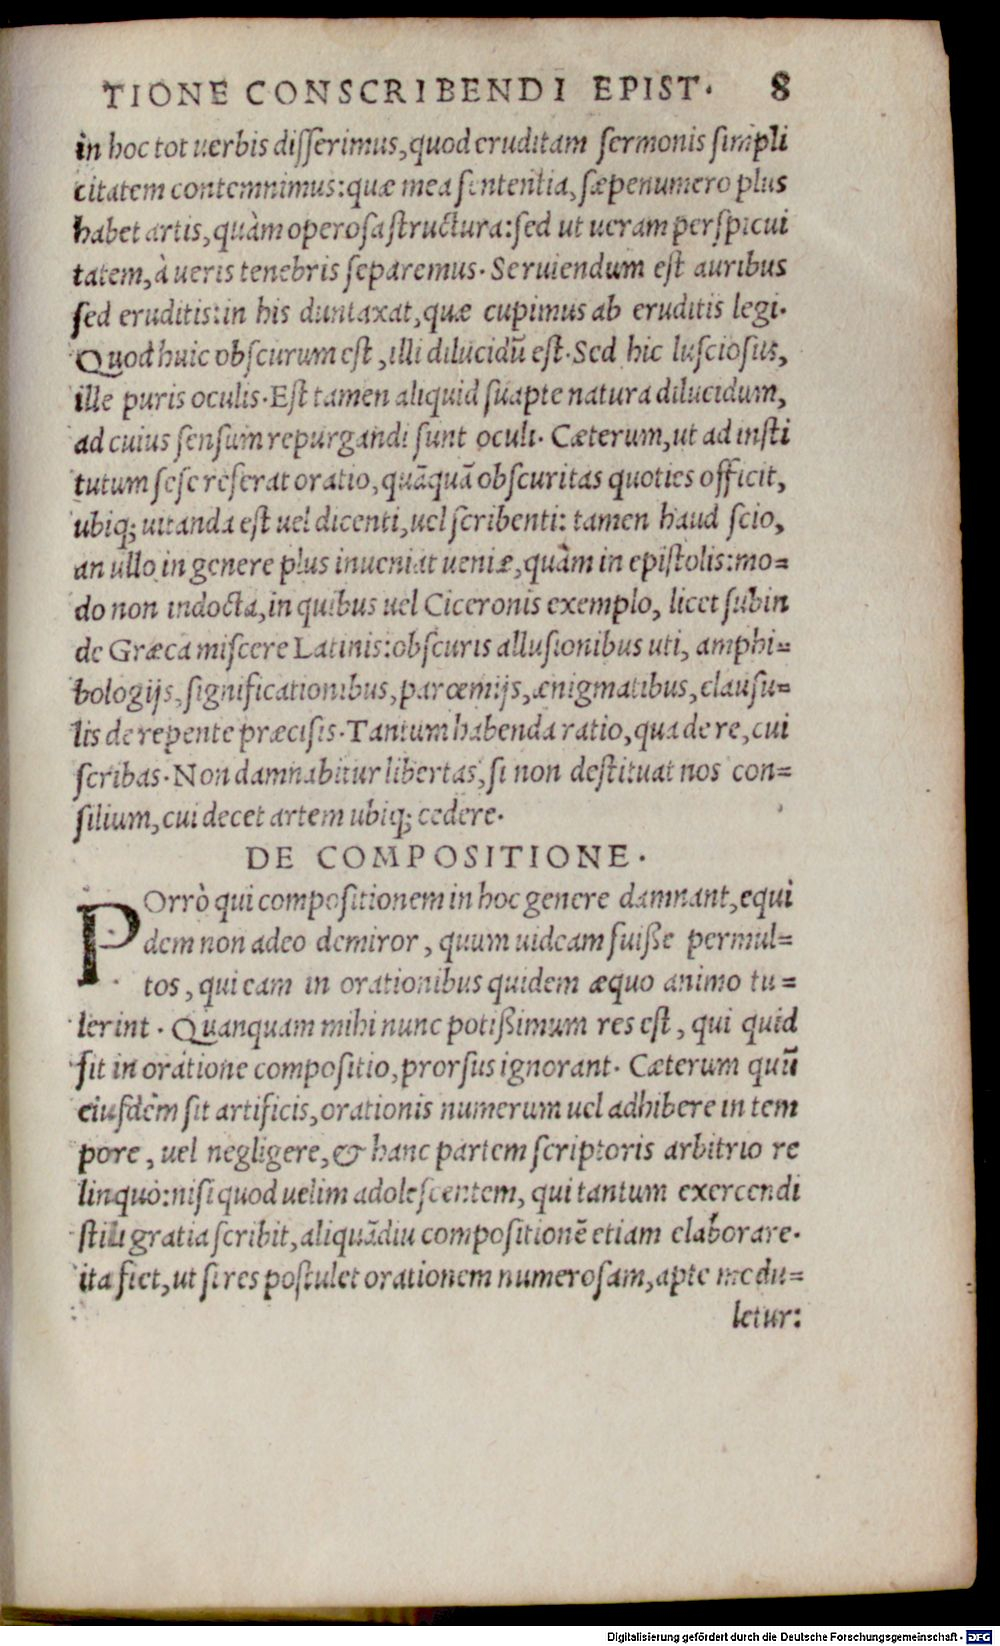 TIONE CONSCRIBENDI EPIST. 8
in hoc tot uerbis disserimus, quod eruditam sermonis simpli
citatem contemnimus: quæ mea sententia, sæpenumero plus
habet artis, quàm operosa structura: sed ut ueram perspicui
tatem, à ueris tenebris separemus. Seruiendum est auribus
sed eruditis: in his duntaxat, quæ cupimus ab eruditis legi.
Quod huic obscurum est, illi dilucidũ est. Sed hic lusciosus,
ille puris oculis. Est tamen aliquid suapte natura dilucidum,
ad cuius sensum repurgandi sunt oculi. Cæterum, ut ad insti
tutum sese referat oratio, quãquã obscuritas quoties officit,
ubiq; uitanda est uel dicenti, uel scribenti: tamen haud scio,
an ullo in genere plus inueniat ueniæ, quàm in epistolis: mo=
do non indocta, in quibus uel Ciceronis exemplo, licet subin
de Græca miscere Latinis: obscuris allusionibus uti, amphi=
bologijs, significationibus, parœmijs, ænigmatibus, clausu=
lis de repente præcisis. Tantum habenda ratio, qua de re, cui
scribas. Non damnabitur libertas, si non destituat nos con=
silium, cui decet artem ubiq; cedere.
DE COMPOSITIONE.
POrrò qui compositionem in hoc genere damnant, equi
dem non adeo demiror, quum uideam fuiße permul=
tos, qui eam in orationibus quidem æquo animo tu=
lerint. Quanquam mihi nunc potißimum res est, qui quid
sit in oratione compositio, prorsus ignorant. Cæterum quũ
eiusdem sit artificis, orationis numerum uel adhibere in tem
pore, uel negligere, & hanc partem scriptoris arbitrio re
linquo: nisi quod uelim adolescentem, qui tantum exercendi
stili gratia scribit, aliquãdiu compositionẽ etiam elaborare.
ita fiet, ut si res postulet orationem numerosam, apte medu=
letur:
Digitalisierung gefördert durch die Deutsche Forschungsgemeinschaft - DFG